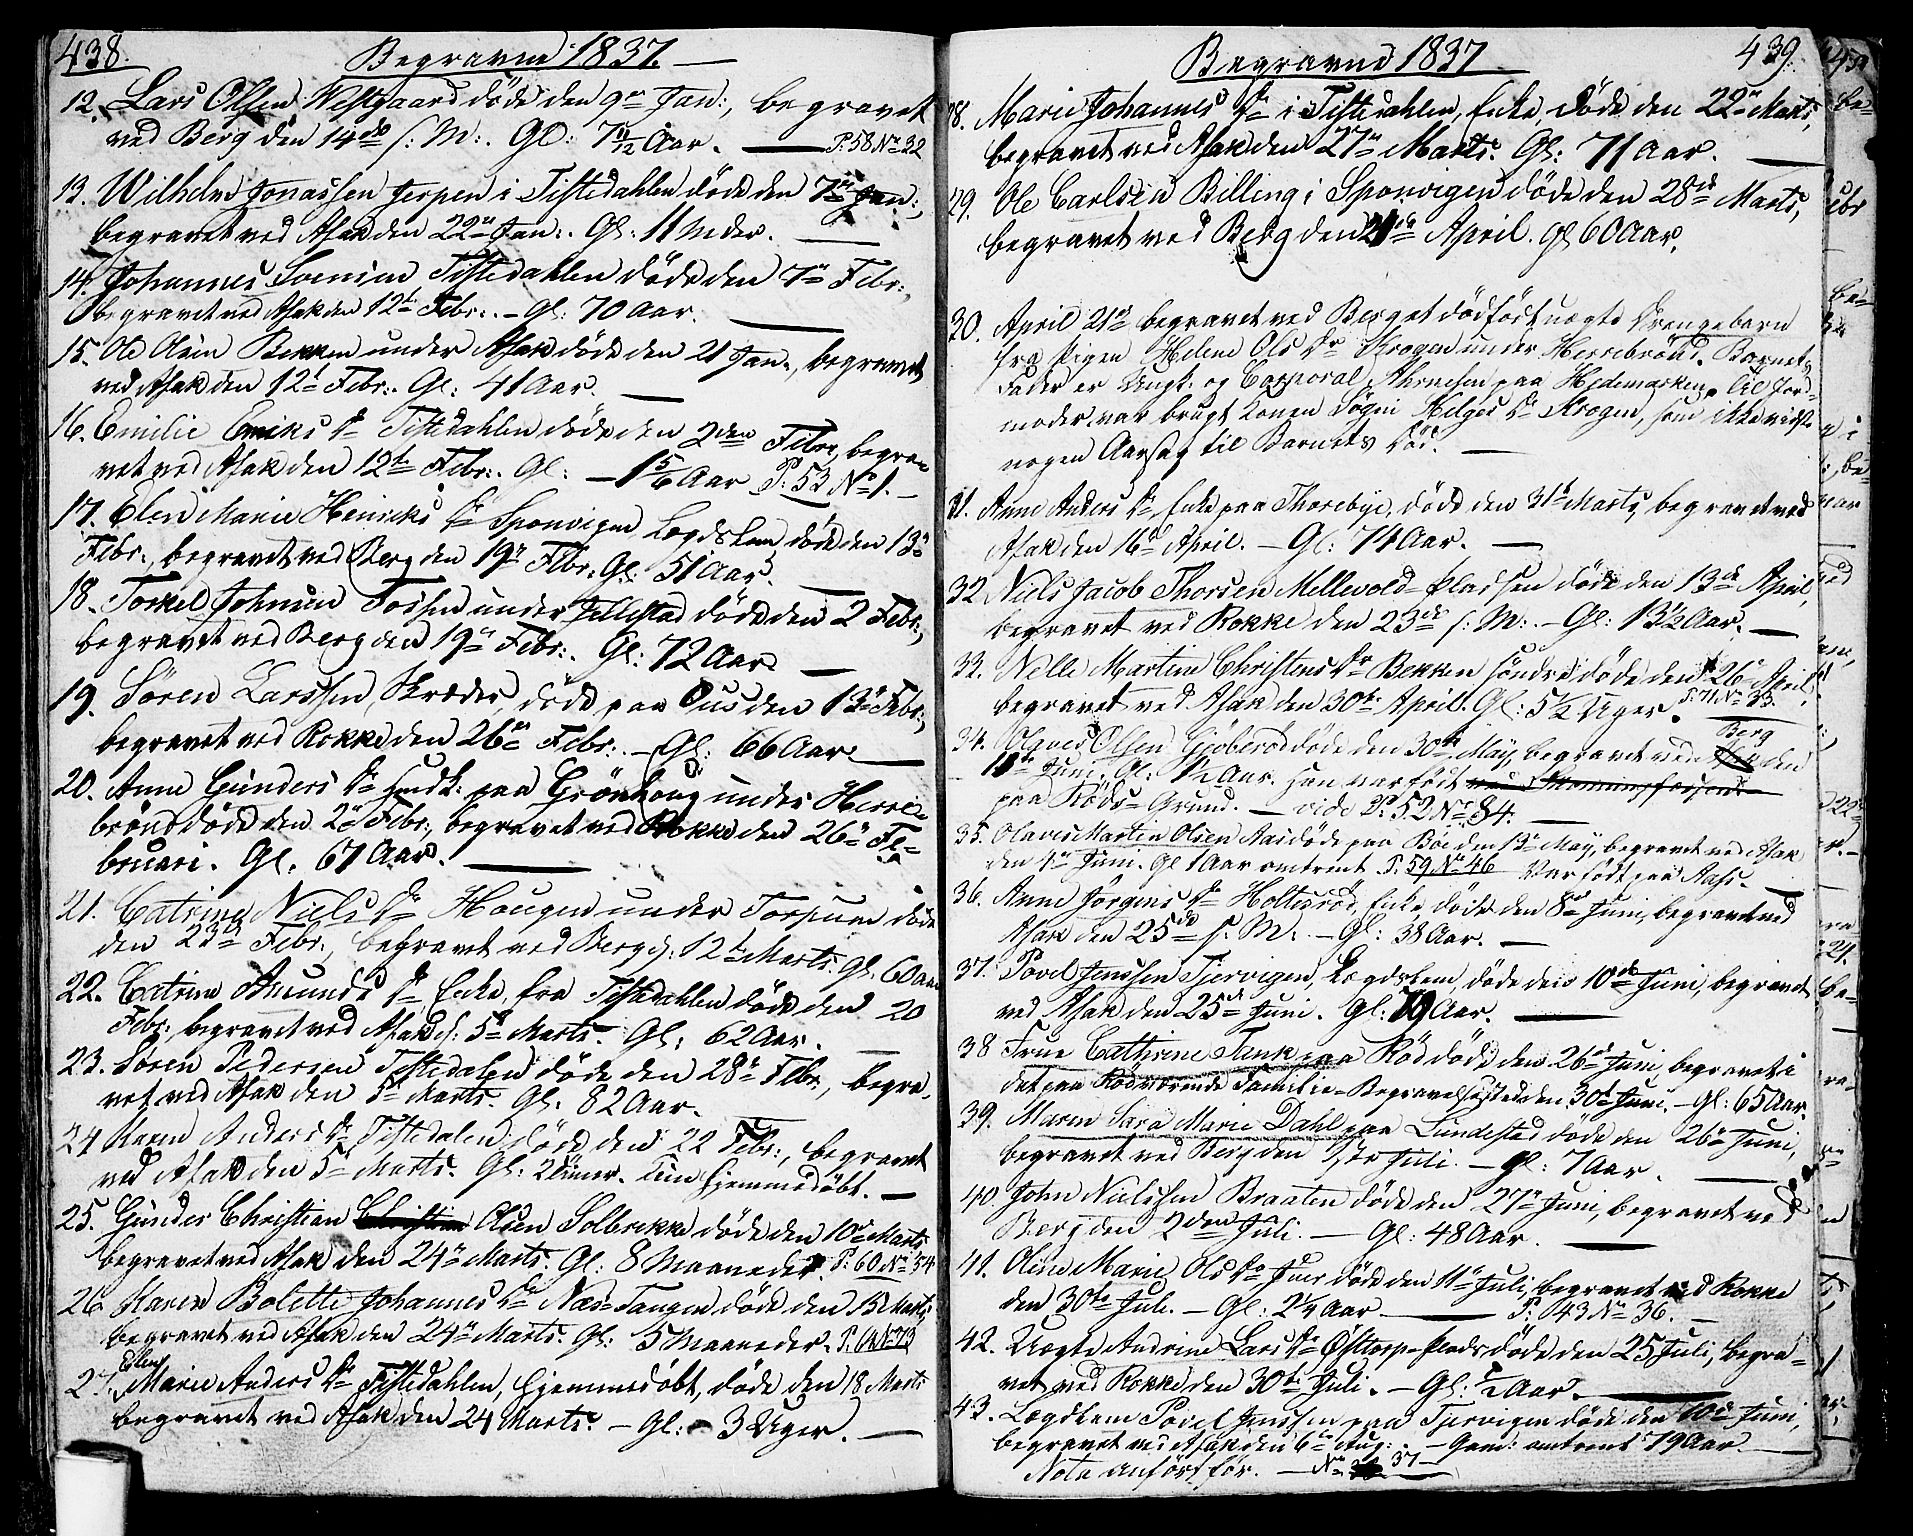 438.
Begravne 1837.
12. Lars Olsen Vestgaard döde den 9de Jan:, begravet
ved Berg den 14de s: M: Gl: 7 11/12 Aar. P. 58 No 32
13. Wilhelm Jonassen Jerpen i Tistedahlen döde den 7de Jan:,
begravet ved Asak den 22de Jan:. Gl: 11 Mder.
14. Johannes Tistedahlen döde den 7de Febr:,
begravet ved Asak den 12te Febr:. - Gl: 70 Aar.
15. Ole Olsen Bekken under Asak döde den 21 Jan:, begravet
ved Asak den 12te Febr:. Gl: 41 Aar.
16. Emilie Eriks Dr Tistedahlen döde den 2den Febr:, begra-
vet ved Asak den 12te Febr:. Gl: - 1 5/6 Aar P: 53 No 1. -
17. Elen Marie Henriks Dr Sponvigen Logdslem, döde den 13de
Febr:, begravet ved Berg den 19de Febr: Gl: 51 Aar.
18. Torkel Johnsen Fossen under Tillestad döde den 2 Febr:,
begravet ved Berg den 19de Febr:. Gl: 72 Aar.
19. Sören Larssen, Skræder, döde paa Bus den 13de Febr:,
begravet ved Rokke den 26de Febr: - Gl: 66 Aar.
20. Anne Gunders Dr Huusk: paa Grönhoug under Herre-
brönd döde den 2de Febr:, begravet ved Rokke den 26de Fe-
bruari. Gl. 61 Aar.
21. Catrine Niels Dr Hougen under Torpum döde
den 23de Febr:, begravet ved Berg d: 12te Marts. Gl. 60 Aar
22. Catrine Amunds Dr Enke, fra Tistedahlen döde den 20
Febr:, begravet ved Asak d: 5te Marts. Gl: 62 Aar.
23. Sören Pedersen Tistedalen döde den 28de Febr:, begra-
vet ved Asak den 5te Marts. Gl: 82 Aar.
24 Karen Anders Dr Tistedalen döde den 22 Febr:, begravet
ved Asak den 5te Marts. Gl: 2 Timer. Kun hjemmedöbt. -
25. Gunder Christian Christian Olsen Solbrekke döde den 10de Marts
begravet ved Asak den 24de Marts. Gl: 8 Maaneder. P: 60 No 54
26 Karen Bolette Johannes Dr Næs-Tangen döde den 15 Marts,
begravet ved Asak den 24de Marts. Gl: 5 Maaneder. P. 64 No 73
Elen
27. Marie Anders Dr Tistedahlen, hjemmedöbt, döde den 18 Marts
begravet ved Asak den 24 Marts. - Gl: - 3 Uger. -
Begravne 1837
439.
28. Marie Johannes Dr i Tistedahlen, Enke, döde den 22de Marts,
begravet ved Asak den 27de Marts. Gl: 71 Aar.
29. Ole Carlsen Billing i Sponvigen döde den 28de Marts,
begravet ved Berg den April. Gl 60 Aar.
30. April 21de begravet ved Berg et dödfödt uægte Drengebarn
fra Pigen Helene Ols Dr Krogen under Herrebrönd. Barnets
Fader er Ungk. og Corporal Ahrnesen paa Hedemarken. Til Jor-
moder var brugt Konen Sögni Helges Dr Krogen, som ikke vidste
nogen Aarsag til Barnets Död. -
31. Anne Anders Dr, Enke paa Thorebye, döde den 31te Marts, begravet ved
Asak den 16de April. - Gl: 74 Aar. -
32 Niels Jacob Thorsen Mellevold-Pladsen döde den 13de April,
begravet ved Rokke den 23de s: M: - Gl: 13 1/2 Aar. -
33. Nelle Martine Christens Dr Bekken söndre döde den 26de April,
begravet ved Asak den 30te April. Gl: 5 1/2 Uger. P. 71 No 33.
Berg
34. Olaves Olsen Gjöberöd döde den 30te May, begravet ved den
11te Juni. Gl. 1 1/2 Aar. Han var födt ved
paa Röds-Grund. - vide P: 52 No 84. -
35. Olaves Martin Olsen Aas döde paa Böe den 13de May, begravet ved Asak
den 4de Juni. Gl 1 Aar omtrent P. 59 No 46 Var födt paa Aas. -
36. Anne Jörgens Dr Holtesröd, Enke, döde den 8de Juni, begravet ved
Asak den 25de s. M. - Gl: 38 Aar. -
37. Povel Jenssen Tjervigen, Lægdslem, döde den 10de Juni, begravet
ved Asak den 25de Juni. Gl: 79 Aar.
38 Frue Cathrine Tank paa Röd döde den 26de Juni, begravet i
det paa Röd værende Familie-Begravelsessted den 30te Juni. - Gl: 65 Aar.
39. Maren Sara Marie Dahl paa Lundestad döde den 26de Juni,
begravet ved Berg den 2den Juli. - Gl: 7 Aar.
40. John Nielssen Braaten döde den 27de Juni, begravet ved
Berg den 2den Juli. - Gl: 48 Aar.
41. Oline Marie Ols Dr Juer döde den 11te Juli, begravet ved Rokke
den 30te Juli. - Gl: 2 1/4 Aar P: 43 No 36. -
42. Uægte Andrine Lars Dr Östtorp-Plads döde den 25 Juli, begra-
vet ved Rokke den 30te Juli. - Gl: 1/2 Aar.
43. Lægdslem Povel Jenssen paa Tjervigen döde den 10de Juni,
begravet ved Asak den 6te Aug: - Gam: omtrent 79 Aar.
Nota anfört för. - No 37 -